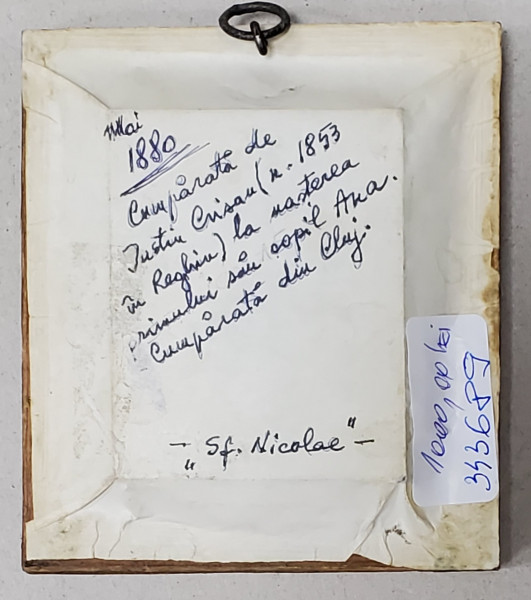 Mai
1880
Cumpărată de
Justin Crisan (n. 1853
în Reghin) la nasterea
primului său copil Ana.
Cumpărată din Cluj.
- „Sf. Nicolae" -
1000,00 lei
343689